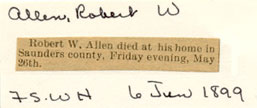 Allen, Robert W
Robert W. Allen died at his home in
Saunders county, Friday evening, May
26th.
F S. W N 6 Jun 1899